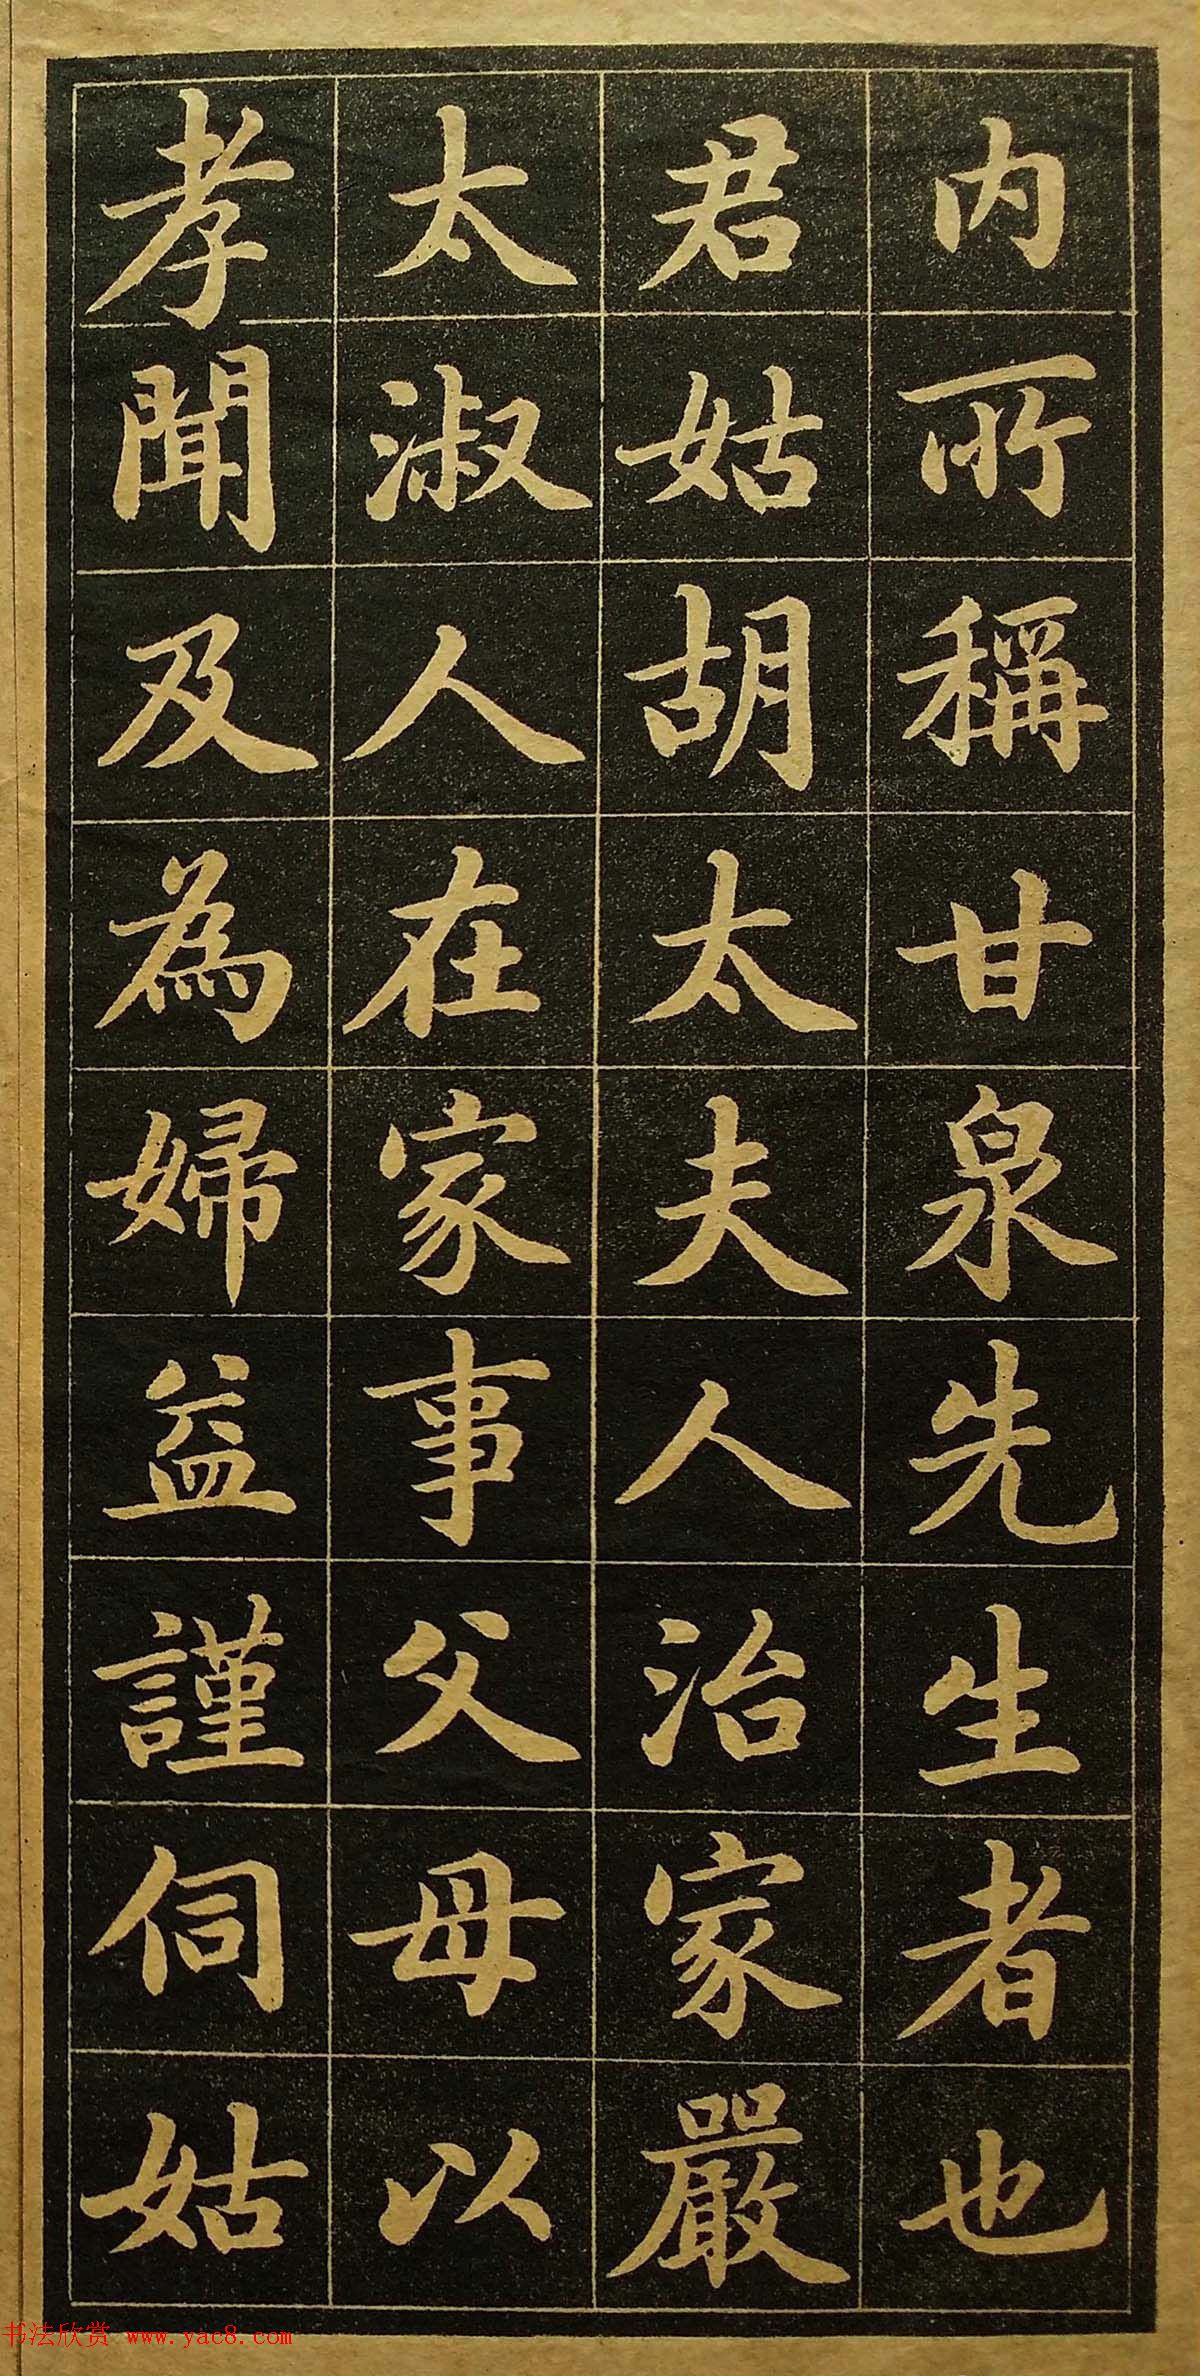 内所稱甘泉先生者也
君姑胡太夫人治家嚴
太淑人在家事父母以
孝聞及為婦益謹伺姑
书法欣赏 www.yac8.com